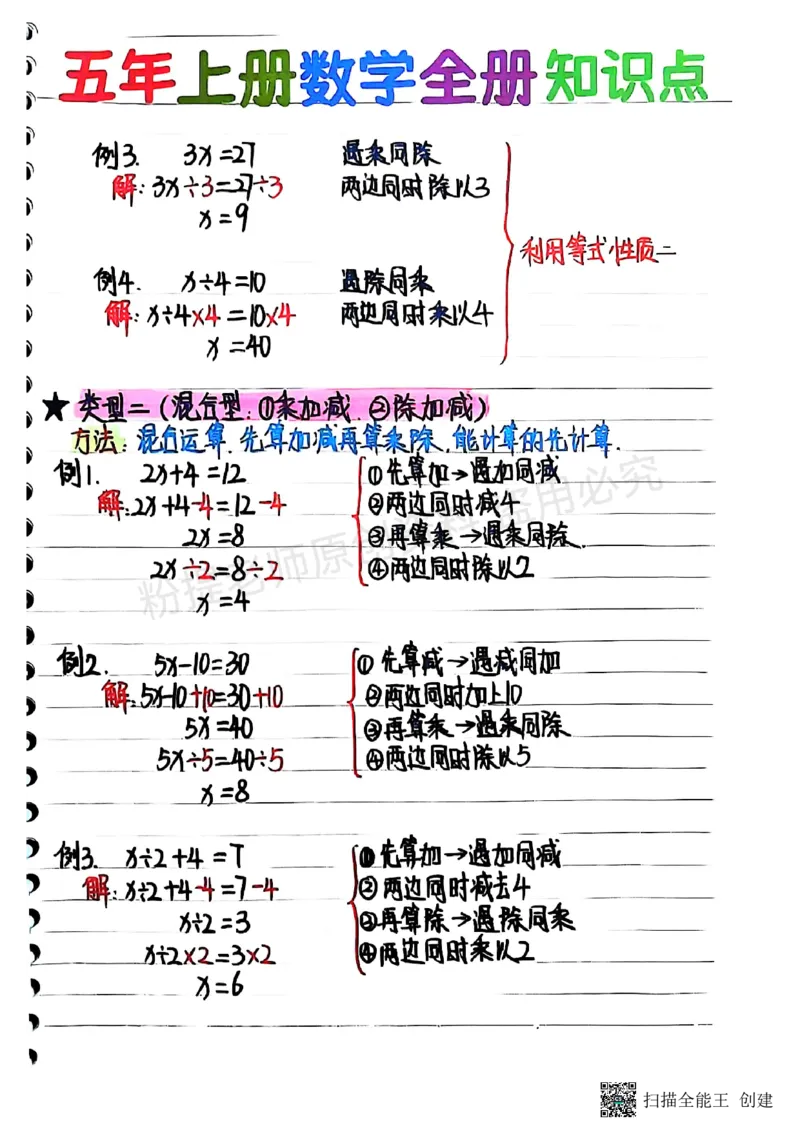 五年上册数学全册知识点
例3. 3x=27 遇乘同除
解:3x÷3=27÷3 两边同时除以3
x=9
利用等式性质二
例4. x÷4=10 遇除同乘
解:x÷4×4=10×4 两边同时乘以4
x=40
★ 类型二(混合型:①乘加减.②除加减)
方法:混合运算.先算加减再算乘除,能计算的先计算.
例1. 2x+4=12 ①先算加→遇加同减
解:2x+4-4=12-4 ②两边同时减4
2x=8 ③再算乘→遇乘同除.
2x÷2=8÷2 ④两边同时除以2
x=4
例2. 5x-10=30 ①先算减→遇减同加
解:5x-10+10=30+10 ②两边同时加上10
5x=40 ③再算乘→遇乘同除
5x÷5=40÷5 ④两边同时除以5
x=8
例3. x÷2+4=7 ①先算加→遇加同减
解:x÷2+4-4=7-4 ②两边同时减去4
x÷2=3 ③再算除→遇除同乘
x÷2×2=3×2 ④两边同时乘以2
x=6
扫描全能王 创建